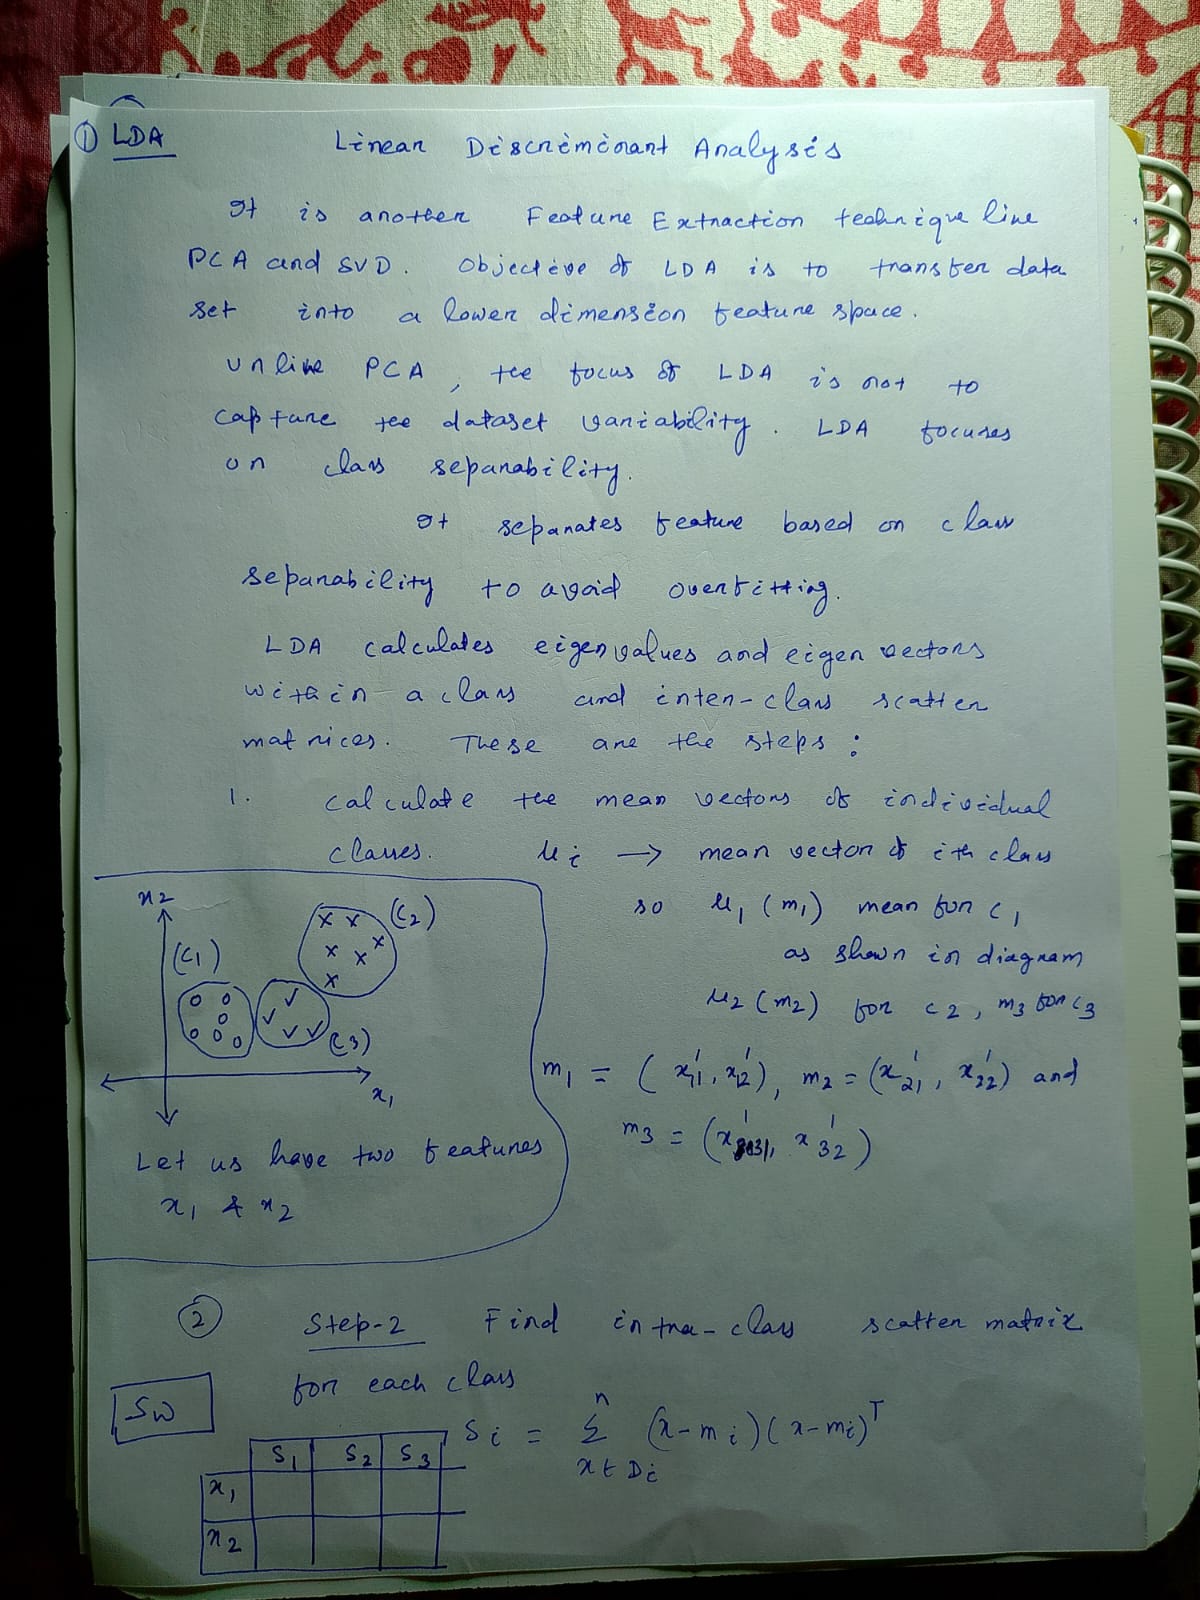 ① LDA Linear Discriminant Analysis
It is another Feature Extraction technique like
PCA and SVD. Objective of LDA is to transfer data
set into a lower dimension feature space.
Unlike PCA, the focus of LDA is not to
capture the dataset variability. LDA focuses
on class separability.
It separates feature based on class
separability to avoid overfitting.
LDA calculates eigenvalues and eigen vectors
within a class and inter-class scatter
matrices. These are the steps :
1. calculate the mean vectors of individual
classes. μi → mean vector of ith class
so μ1 (m1) mean for c1
as shown in diagram
μ2 (m2) for c2, m3 for c3
m1 = (x'11, x'12), m2 = (x'21, x'22) and
m3 = (x'31, x'32)
x2
(C1)
(C2)
(C3)
x1
Let us have two features
x1 & x2
② Step-2 Find intra-class scatter matrix
for each class
SW
Si = Σ^n_{x∈Di} (x-mi)(x-mi)^T
S1 S2 S3
x1
x2